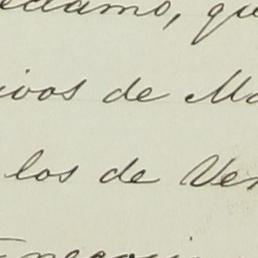 edamo, qu
ivos de Ma
los de Ven